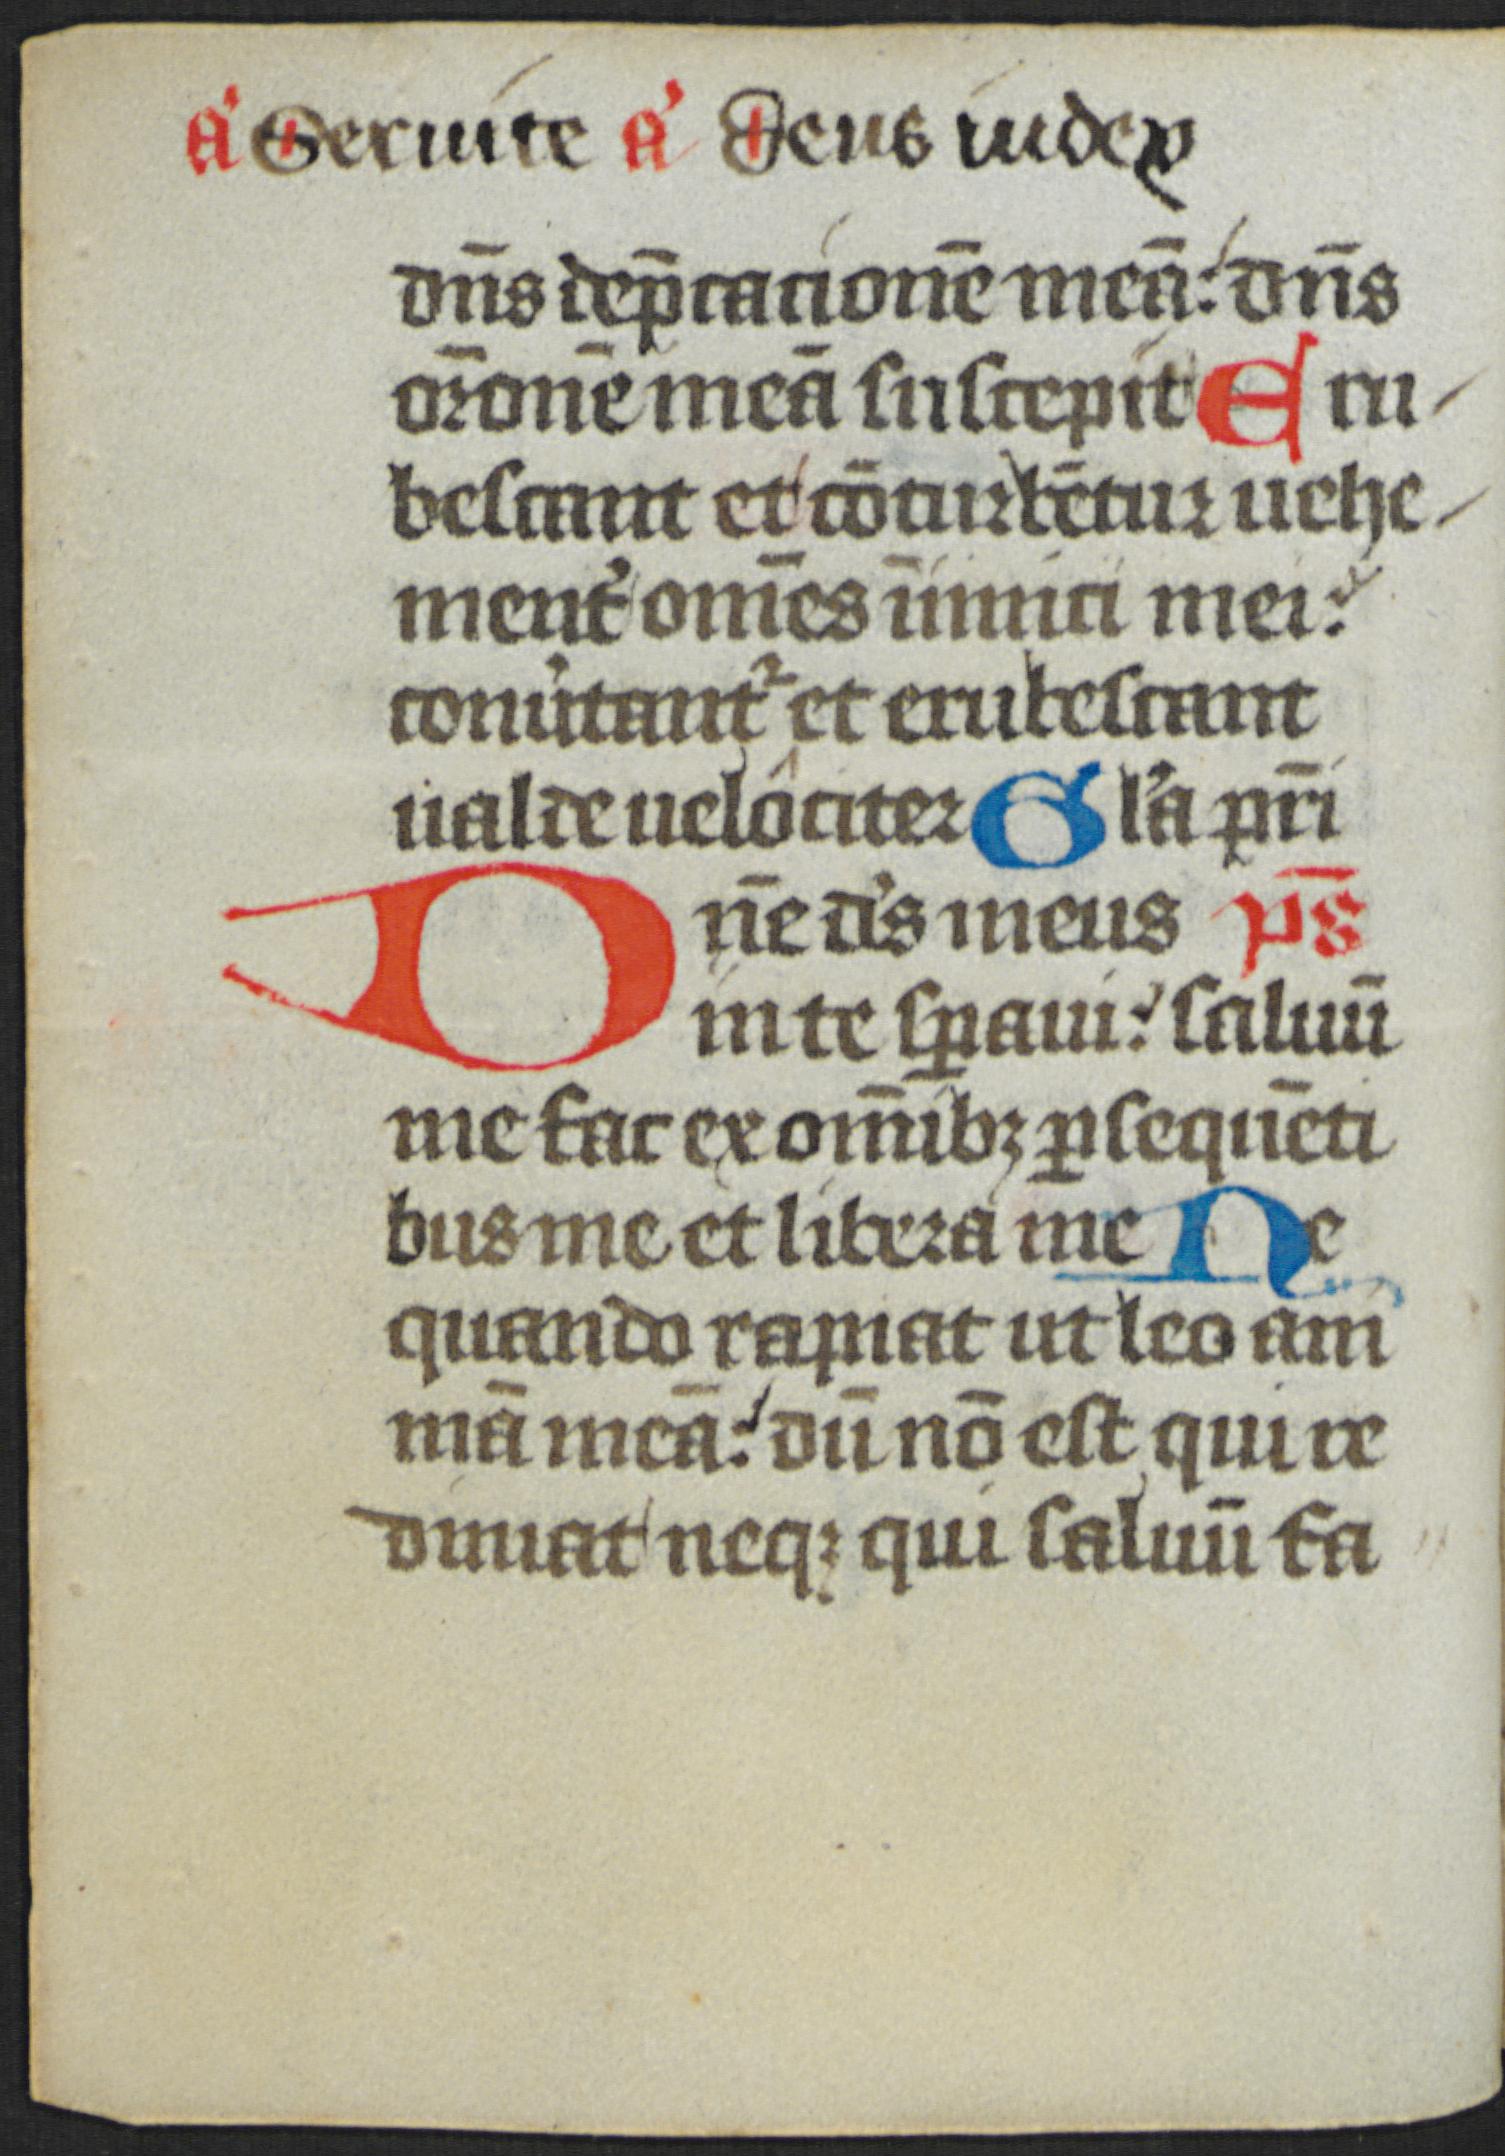 a' Seruite a' Deus iudex
dn̄s dep̄cacionē meā: dn̄s
or̄onē meā suscepit E ru
bescant et cōturbētur uehe
ment' om̄es inimici mei:
conu'tant᷑ et erubescant
ualde uelociter Gl'a pr̄i
Dn̄e d's meus ps̄
in te sꝑaui: saluū
me fac ex om̄ibꝫ ꝑsequēti
bus me et libera me Ne
quando rapiat ut leo ani
mā meā: dū nō est qui re
dimat neqꝫ qui saluū fa